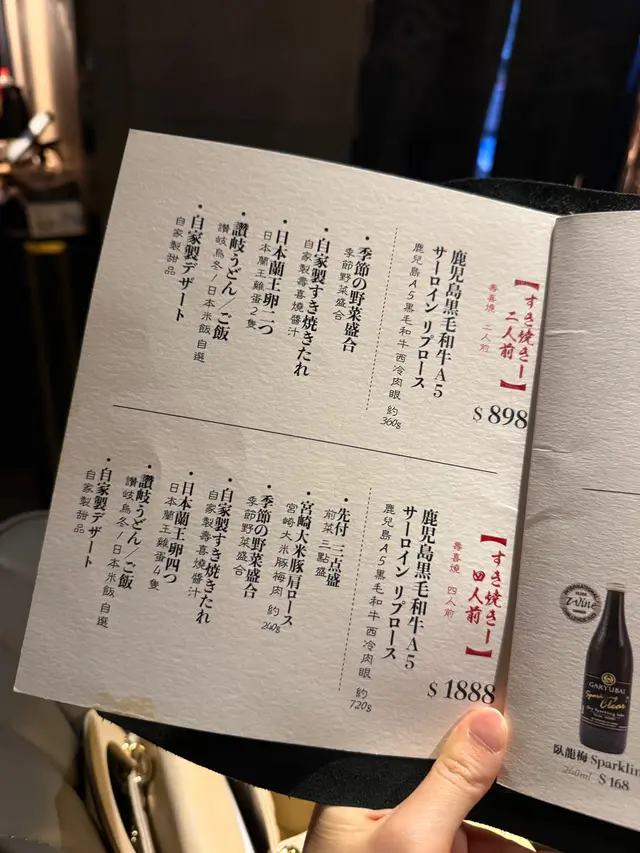 【すき焼きー
二人前】
壽喜燒 二人前
$898
鹿児島黒毛和牛A5
サーロイン リブロース
鹿兒島A5黑毛和牛 西冷肉眼 約360g
・季節の野菜盛合
季節野菜盛合
・自家製すき焼きたれ
自家製壽喜燒醬汁
・日本蘭王卵二つ
日本蘭王雞蛋2隻
・讃岐うどん／ご飯
讚岐烏冬/日本米飯 自選
・自家製デザート
自家製甜品
【すき焼きー
四人前】
壽喜燒 四人前
$1888
鹿児島黒毛和牛A5
サーロイン リブロース
鹿兒島A5黑毛和牛 西冷肉眼 約720g
・先付 三点盛
前菜三點盛
・宮崎大米豚肩ロース
宮崎大米豚梅肉 約260g
・季節の野菜盛合
季節野菜盛合
・自家製すき焼きたれ
自家製壽喜燒醬汁
・日本蘭王卵四つ
日本蘭王雞蛋4隻
・讃岐うどん／ご飯
讚岐烏冬/日本米飯 自選
・自家製デザート
自家製甜品
GARYUBAI
Sparkling
Clear
臥龍梅 Sparklin
260ml $168